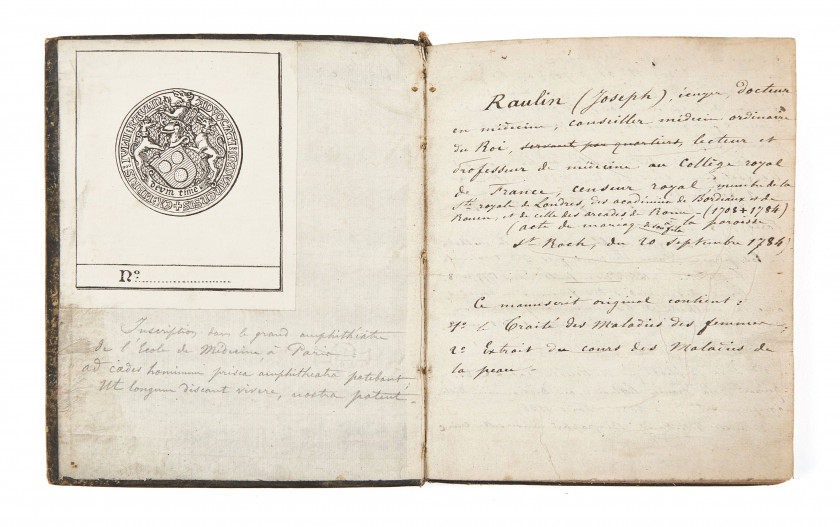 DEUM TIME
No
Inscription dans le grand amphithéatre
de l'Ecole de Médecine à Paris
ad cædes hominum prisca amphitheatra patebant
Ut longum discant vivere, nostra patent.
Raulin (Joseph), écuyer, docteur
en médecine, conseiller médecin ordinaire
du Roi, servant par quartiers, lecteur et
professeur de médecine au Collège royal
de France, censeur royal, membre de la
Sté royale de Londres, des académies de Bordeaux et de
Rouen, et de celle des arcades de Rome - (1708+1784)
(acte de mariage de sa fille à la paroisse
St Roch, du 20 septembre 1784).
Ce manuscrit original contient :
1º le Traité des Maladies des femmes,
2º Extrait du cours des Maladies de
la peau.-